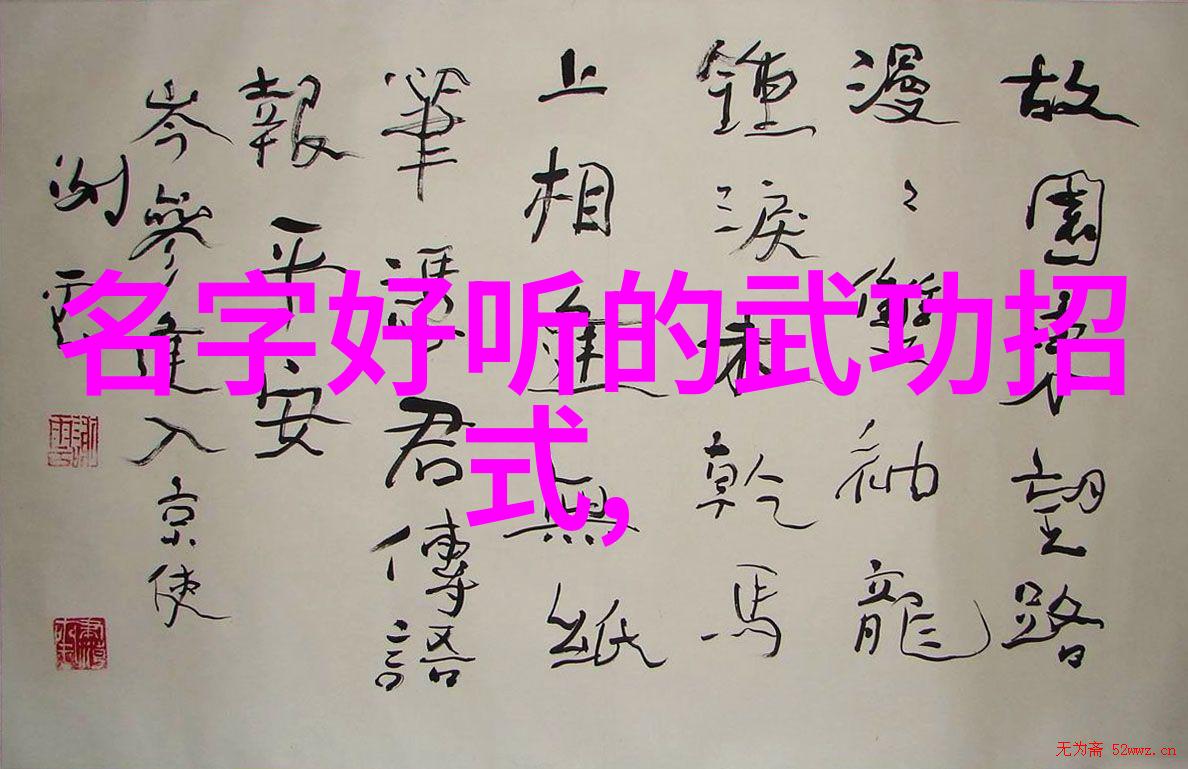 故園東望路
漫々雙袖龍
鍾淚未乾馬
上相逢無紙
筆憑君傳語
報平安
岑參逢入京使
名字好听的武功招
式，
无为斋 52wwz.cn